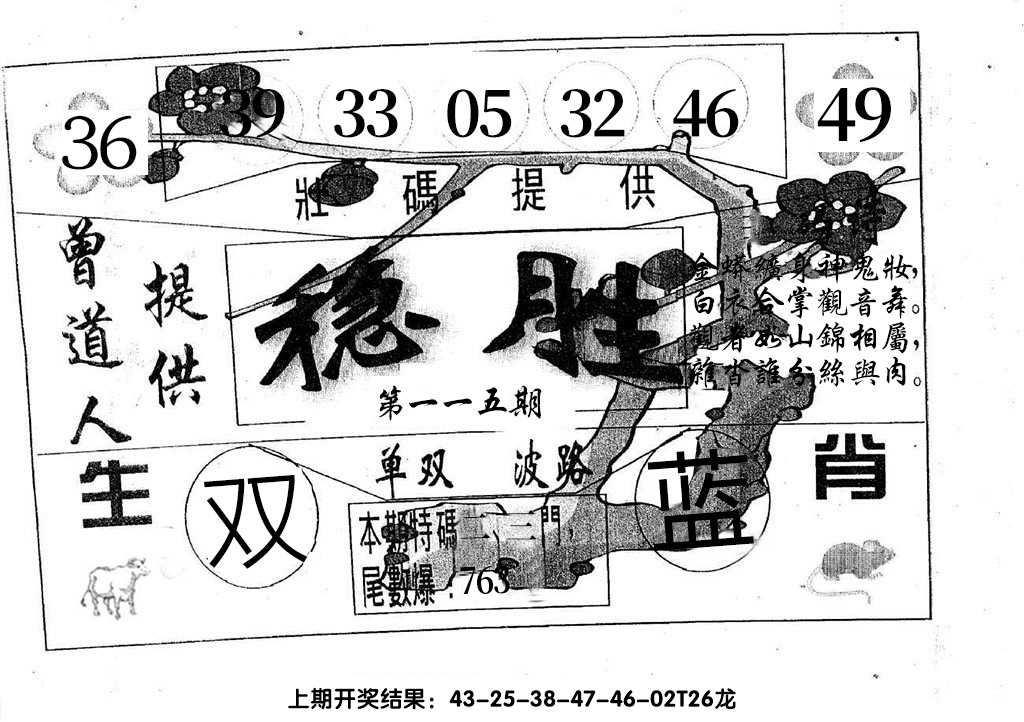 36 39 33 05 32 46 49
壯碼提供
曾道人
提供
稳胜
第一一五期
特
金蟒纏身神鬼妝，
白衣合掌觀音舞。
觀者如山錦相屬，
雜沓誰分絲與肉。
单双 波路
生肖
双
蓝
本期特碼二、三門，
尾數爆：763
上期开奖结果：43-25-38-47-46-02T26龙